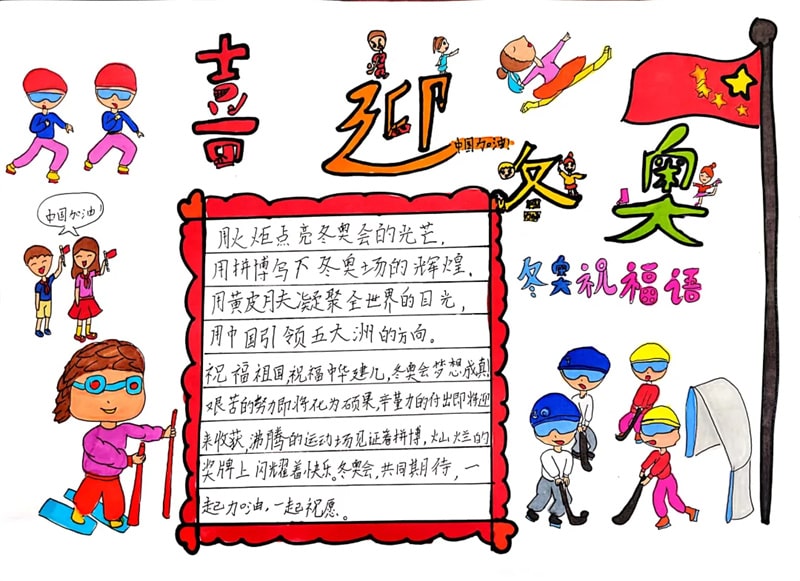 喜迎冬奥
中国加油!
中国加油!
冬奥祝福语
用火炬点亮冬奥会的光芒,
用拼博写下冬奥场的辉煌,
用黄皮肤凝聚全世界的目光,
用中国引领五大洲的方向。
祝福祖国,祝福中华健儿,冬奥会梦想成真
艰苦的努力即将化为硕果,辛勤的付出即将迎
来收获,沸腾的运动场见证着拼博,灿烂的
奖牌上闪耀着快乐。冬奥会,共同期待,一
起加油,一起祝愿。